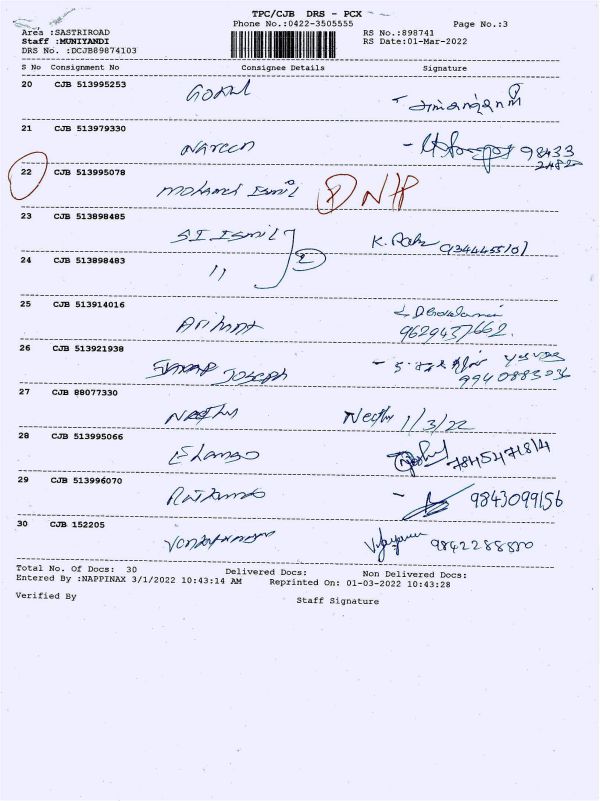 TPC/CJB DRS - PCX
Phone No.:0422-3505555 Page No.:3
Area :SASTRIROAD RS No.:898741
Staff :MUNIYANDI RS Date:01-Mar-2022
DRS No. :DCJB89874103
S No Consignment No Consignee Details Signature
20 CJB 513995253 Gopal
21 CJB 513979330 Naveen 98433
22 CJB 513995078 Mohamed Ismil
23 CJB 513898485 S.I. Ismil K.
24 CJB 513898483 11 2
25 CJB 513914016
9629437662.
26 CJB 513921938 Joseph
27 CJB 88077330 Neethu Neethu 1/3/22
28 CJB 513995066 Elango
29 CJB 513996070 9843099156
30 CJB 152205
Total No. Of Docs: 30 Delivered Docs: Non Delivered Docs:
Entered By :NAPPINAX 3/1/2022 10:43:14 AM Reprinted On: 01-03-2022 10:43:28
Verified By Staff Signature